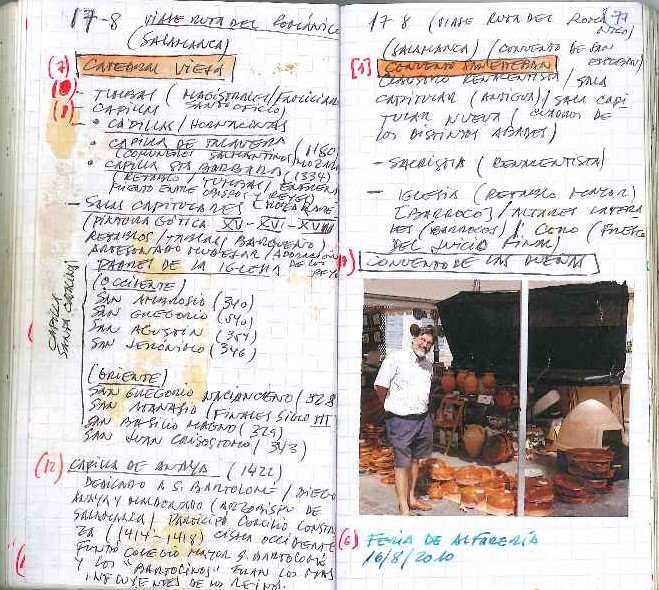 17-8 VIAJE RUTA DEL ROMÁNICO
(SALAMANCA)
(7) CATEDRAL VIEJA
- TUMBAS (MAGISTRALES/
(8) CAPILLA SANTO OFICIO
- • CAPILLAS/HORNACINAS
• CAPILLA DE TALAVERA (1180)
(COMUNEROS SALMANTINOS/
• CAPILLA STA BARBARA (1334)
(RETABLO/TUMBAS/
ENTRE OBISPOS Y REYES)
- SALAS CAPITULARES (
(PINTURA GÓTICA XV-XVI-XVIII
RETABLOS/TABLAS/
ARTESONADO MUDEJAR/ADORACIÓN
DE LOS REYES
PADRES DE LA IGLESIA
CAPILLA
SANTA CATALINA
(OCCIDENTE)
SAN AMBROSIO (340)
SAN GREGORIO (540)
SAN AGUSTIN (354)
SAN JERÓNIMO (346)
(ORIENTE)
SAN GREGORIO NACIANCENO (328
SAN ATANASIO (FINALES SIGLO III
SAN BASILIO MAGNO (329)
SAN JUAN CRISOSTOMO (343)
(12) CAPILLA DE ANAYA (1422)
DEDICADO A S. BARTOLOME/DIEGO
ANAYA Y MALDONADO (ARZOBISPO DE
SALAMANCA/PARTICIPÓ CONCILIO CONSTAN
ZA (1414-1418) CISMA OCCIDENTE
FUNDÓ COLEGIO MAYOR S. BARTOLOMÉ
Y LOS "BARTOLINOS" ERAN LOS MAS
INFLUYENTES DE LOS REINOS.
17-8 (VIAJE RUTA DEL ROMÁ
NICO)
77
(SALAMANCA)/CONVENTO DE SAN
ESTEBAN)
CONVENTO SAN ESTEBAN
CLAUSTRO RENACENTISTA/SALA
CAPITULAR (ANTIGUA)/SALA CAPI
TULAR NUEVA (CUADROS DE
LOS DISTINTOS ABADES)
- SACRISTIA (RENACENTISTA)
- IGLESIA (RETABLO MAYOR)
(BARROCO)/ALTARES LATERA
LES (BARROCOS)/CORO (FRESCO
DEL JUICIO FINAL)
CONVENTO DE LAS DUEÑAS
(6) FERIA DE ALFARERÍA
16/8/2010